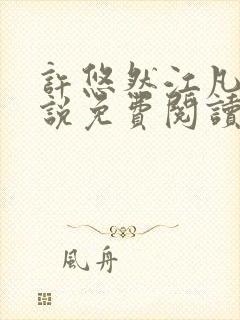 許悠然江凡
説免費閱讀
風舟